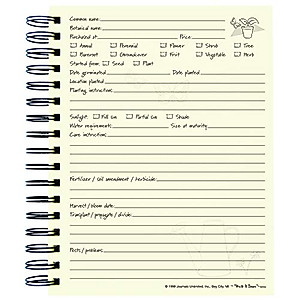 Common name:
Botanical name:
Purchased at: Price:
Annual Perennial Flower Shrub Tree
Evergreen Groundcover Fruit Vegetable Herb
Started from: Seed Plant
Date germinated: Date planted:
Location planted:
Planting instruction:
Sunlight: Full sun Partial sun Shade
Water requirements: Size at maturity:
Care instruction:
Fertilizer / soil amendment / herbicide:
Harvest / bloom date:
Transplant / propagate / divide:
Pests / problems:
© 1999 Journals Unlimited, Inc., Bay City, MI